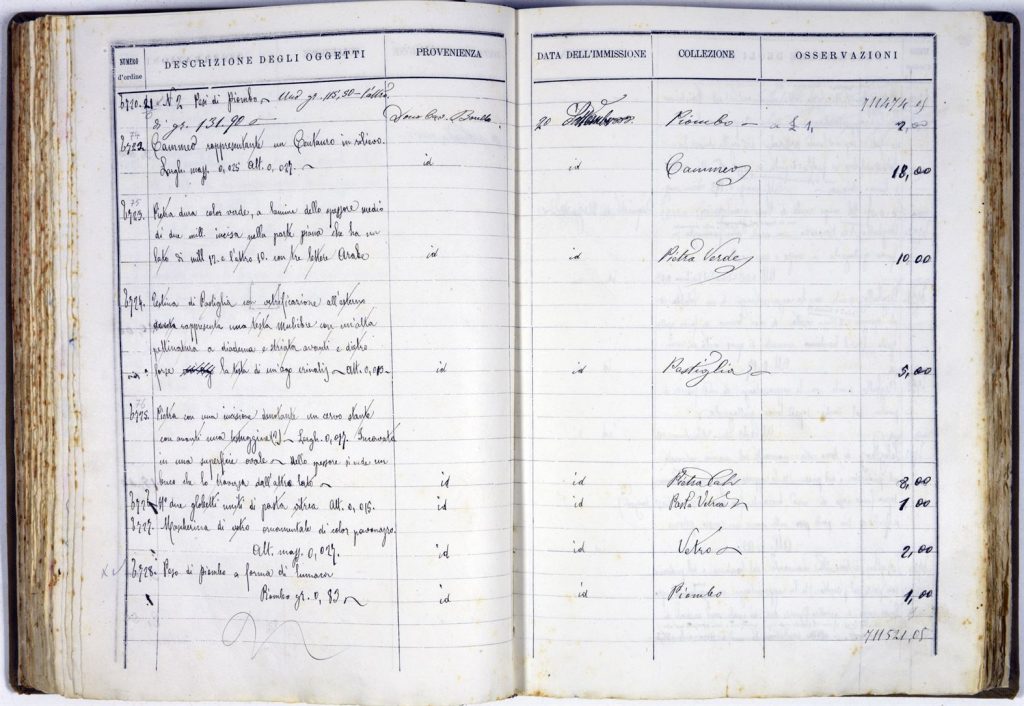 NUMERO d'ordine DESCRIZIONE DEGLI OGGETTI PROVENIENZA DATA DELL'IMMISSIONE COLLEZIONE OSSERVAZIONI
711474.05
6720.21 N 2 Pesi di Piombo Uno gr. 115,50 - l'altro
di gr. 131.90 Dono Cav. 20 Piombo - a £ 1, 2,00
74
6722. Cammeo rappresentante un Centauro in rilievo.
Largh. mass. 0,025 Alt. 0,027. id id Cammeo 18,00
75
6723. Pietra dura color verde, a lamine dello spessore medio
di due mill. incisa nella parte piana che ha un
lato di mill 12. e l'altro 10. con tre lettere Arabe id id Pietra Verde 10.00
6724. Testina di Pastiglia con vetrificazione all'esterno
rappresenta una testa muliebre con un'alta
pettinatura a diadema e striata avanti e dietro
forse la testa di un ago crinale Alt. 0,013 id id Pastiglia 5,00
76
6725. Pietra con una incisione denotante un cervo stante
con avanti una testuggine(?) Largh. 0,017. Incavata
in una superficie ovale - Nello spessore si vede un
buco che lo traversa dall'altro lato id id Pietra 2,00
6726. N° due globetti uniti di pasta vitrea Alt. 0,015. id id Pasta Vitrea 1 00
6727. Mascherina di vetro ornamentale di color pavonazzo.
Alt. mass. 0,027. id id Vetro 2,00
6728. Peso di piombo a forma di lumaca
Piombo gr. 0,83 id id Piombo 1,00
711521,05